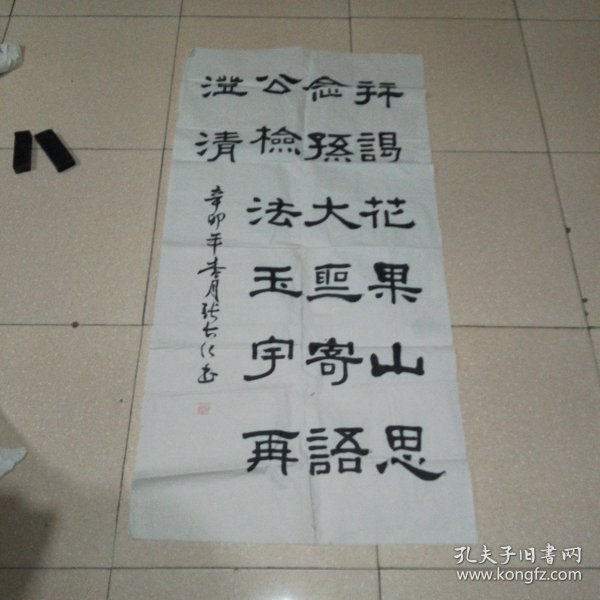 拜謁花果山思
念孫大聖寄語
公檢法玉宇再
澄清
辛卯年春月張大仁書
孔夫子旧書网
www.kongfz.com